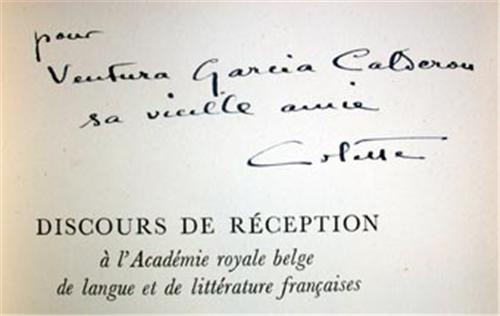 pour
Ventura Garcia Calderon
sa vieille amie
Colette
DISCOURS DE RÉCEPTION
à l'Académie royale belge
de langue et de littérature françaises